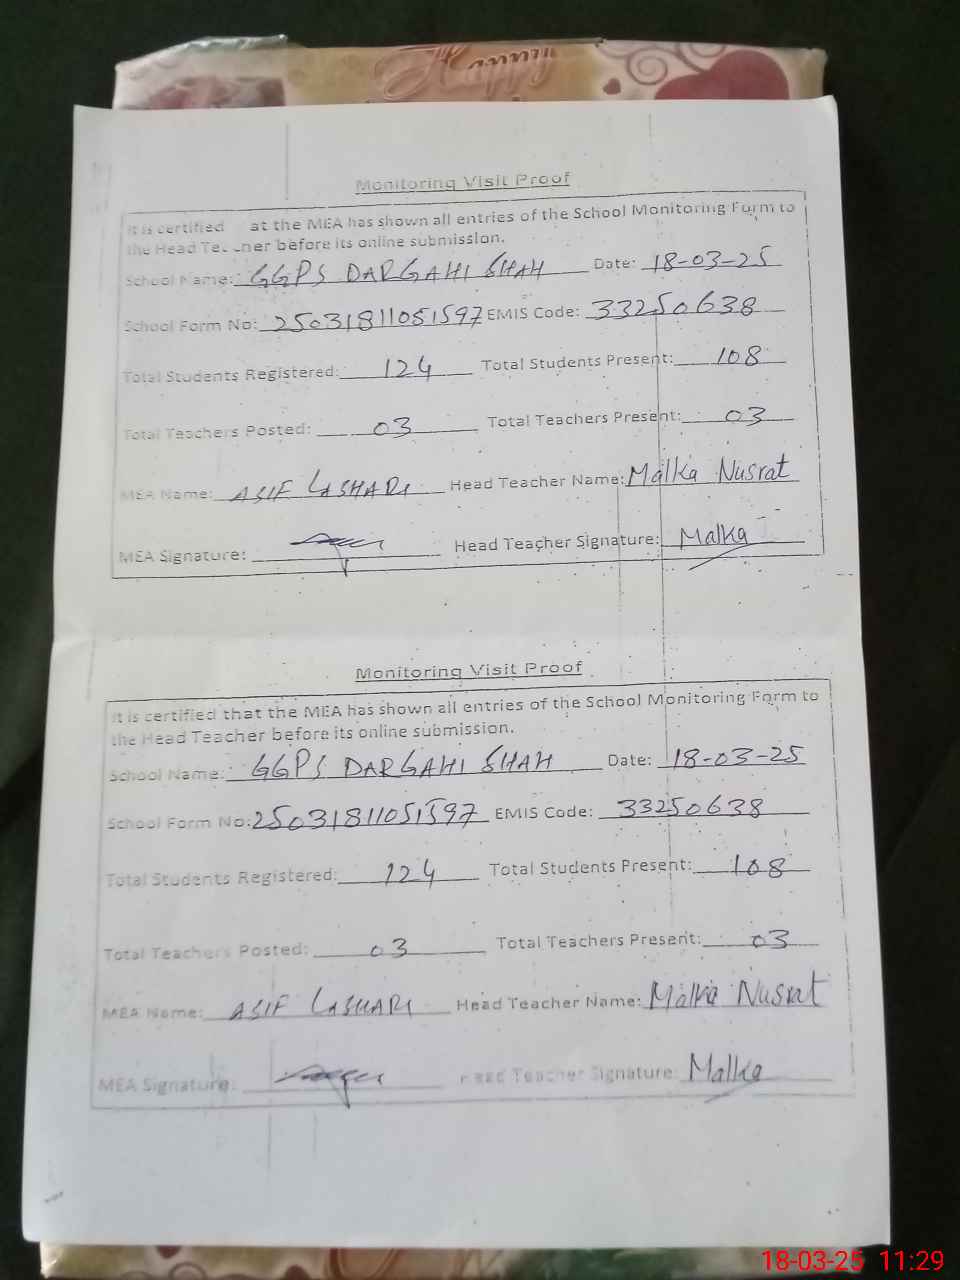 Happy
Monitoring Visit Proof
It is certified at the MEA has shown all entries of the School Monitoring Form to
the Head Te. .ner before its online submission.
School Name: GGPS DARGAHI SHAH Date: 18-03-25
School Form No: 25031811051597 EMIS Code: 33250638
Total Students Registered: 124 Total Students Present: 108
Total Teachers Posted: 03 Total Teachers Present: 03
MEA Name: ASIF LASHARI Head Teacher Name: Malka Nusrat
MEA Signature: Head Teacher Signature: Malka
Monitoring Visit Proof
It is certified that the MEA has shown all entries of the School Monitoring Form to
the Head Teacher before its online submission.
School Name: GGPS DARGAHI SHAH Date: 18-03-25
School Form No: 25031811051597 EMIS Code: 33250638
Total Students Registered: 124 Total Students Present: 108
Total Teachers Posted: 03 Total Teachers Present: 03
MEA Name: ASIF LASHARI Head Teacher Name: Malka Nusrat
MEA Signature: Head Teacher Signature: Malka
18-03-25 11:29